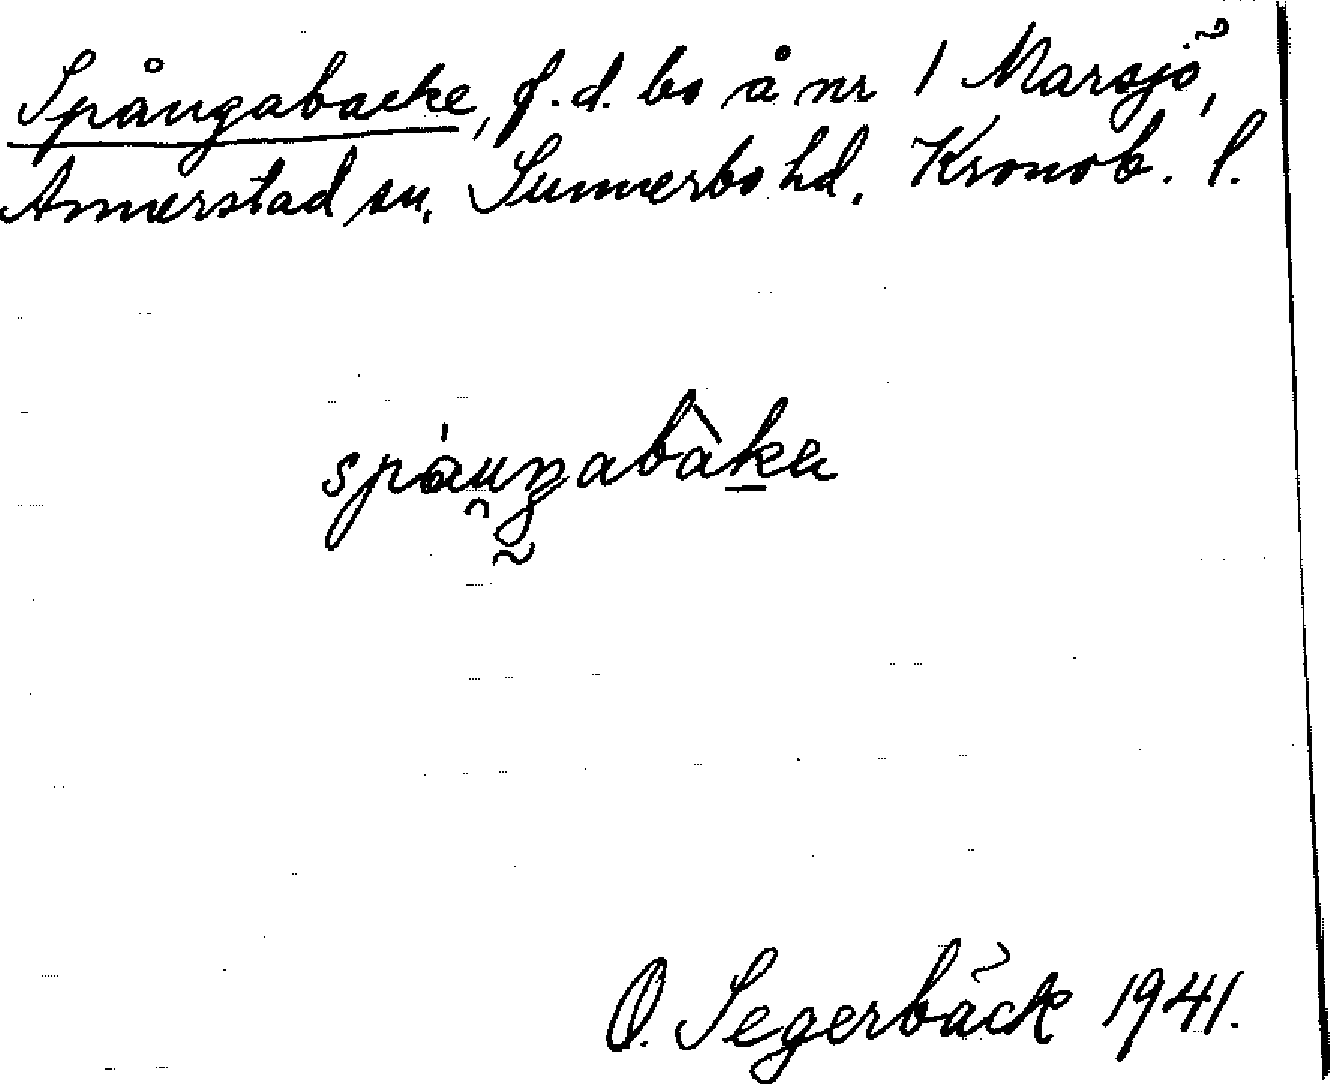 Spångabacke, f.d. bo å nr 1 Marsjö,
Annerstad sn. Sunnerbo hd. Kronob. l.
spáu̯ŋabàka
O. Segerbäck 1941.